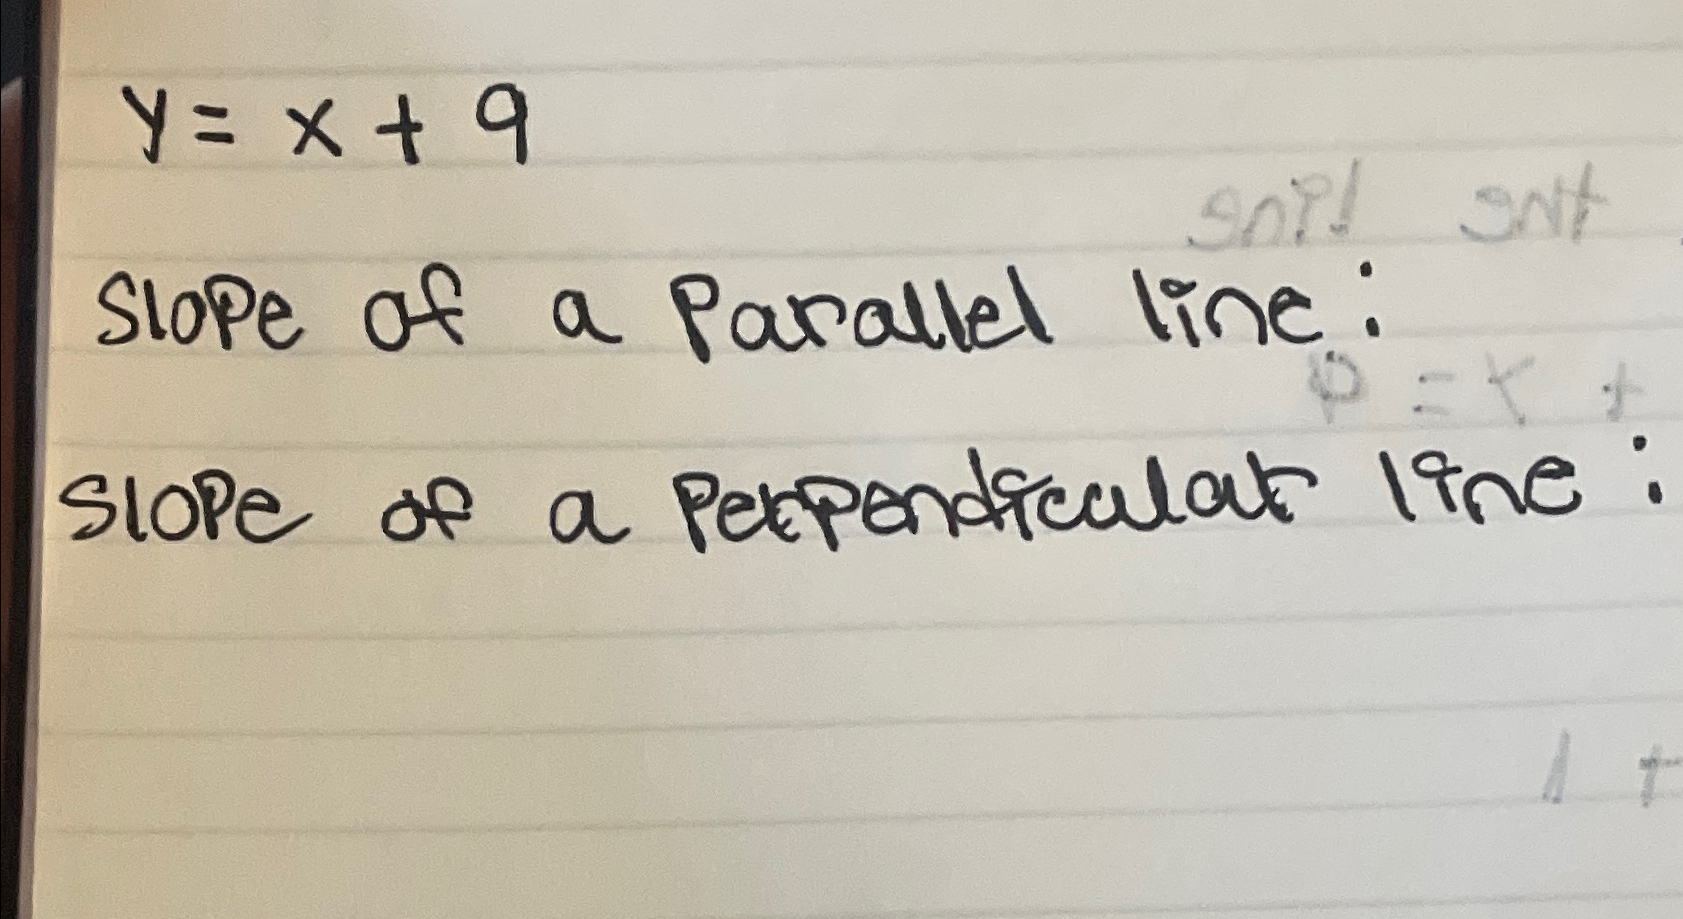 y = x + 9
slope of a parallel line:
slope of a perpendicular line: